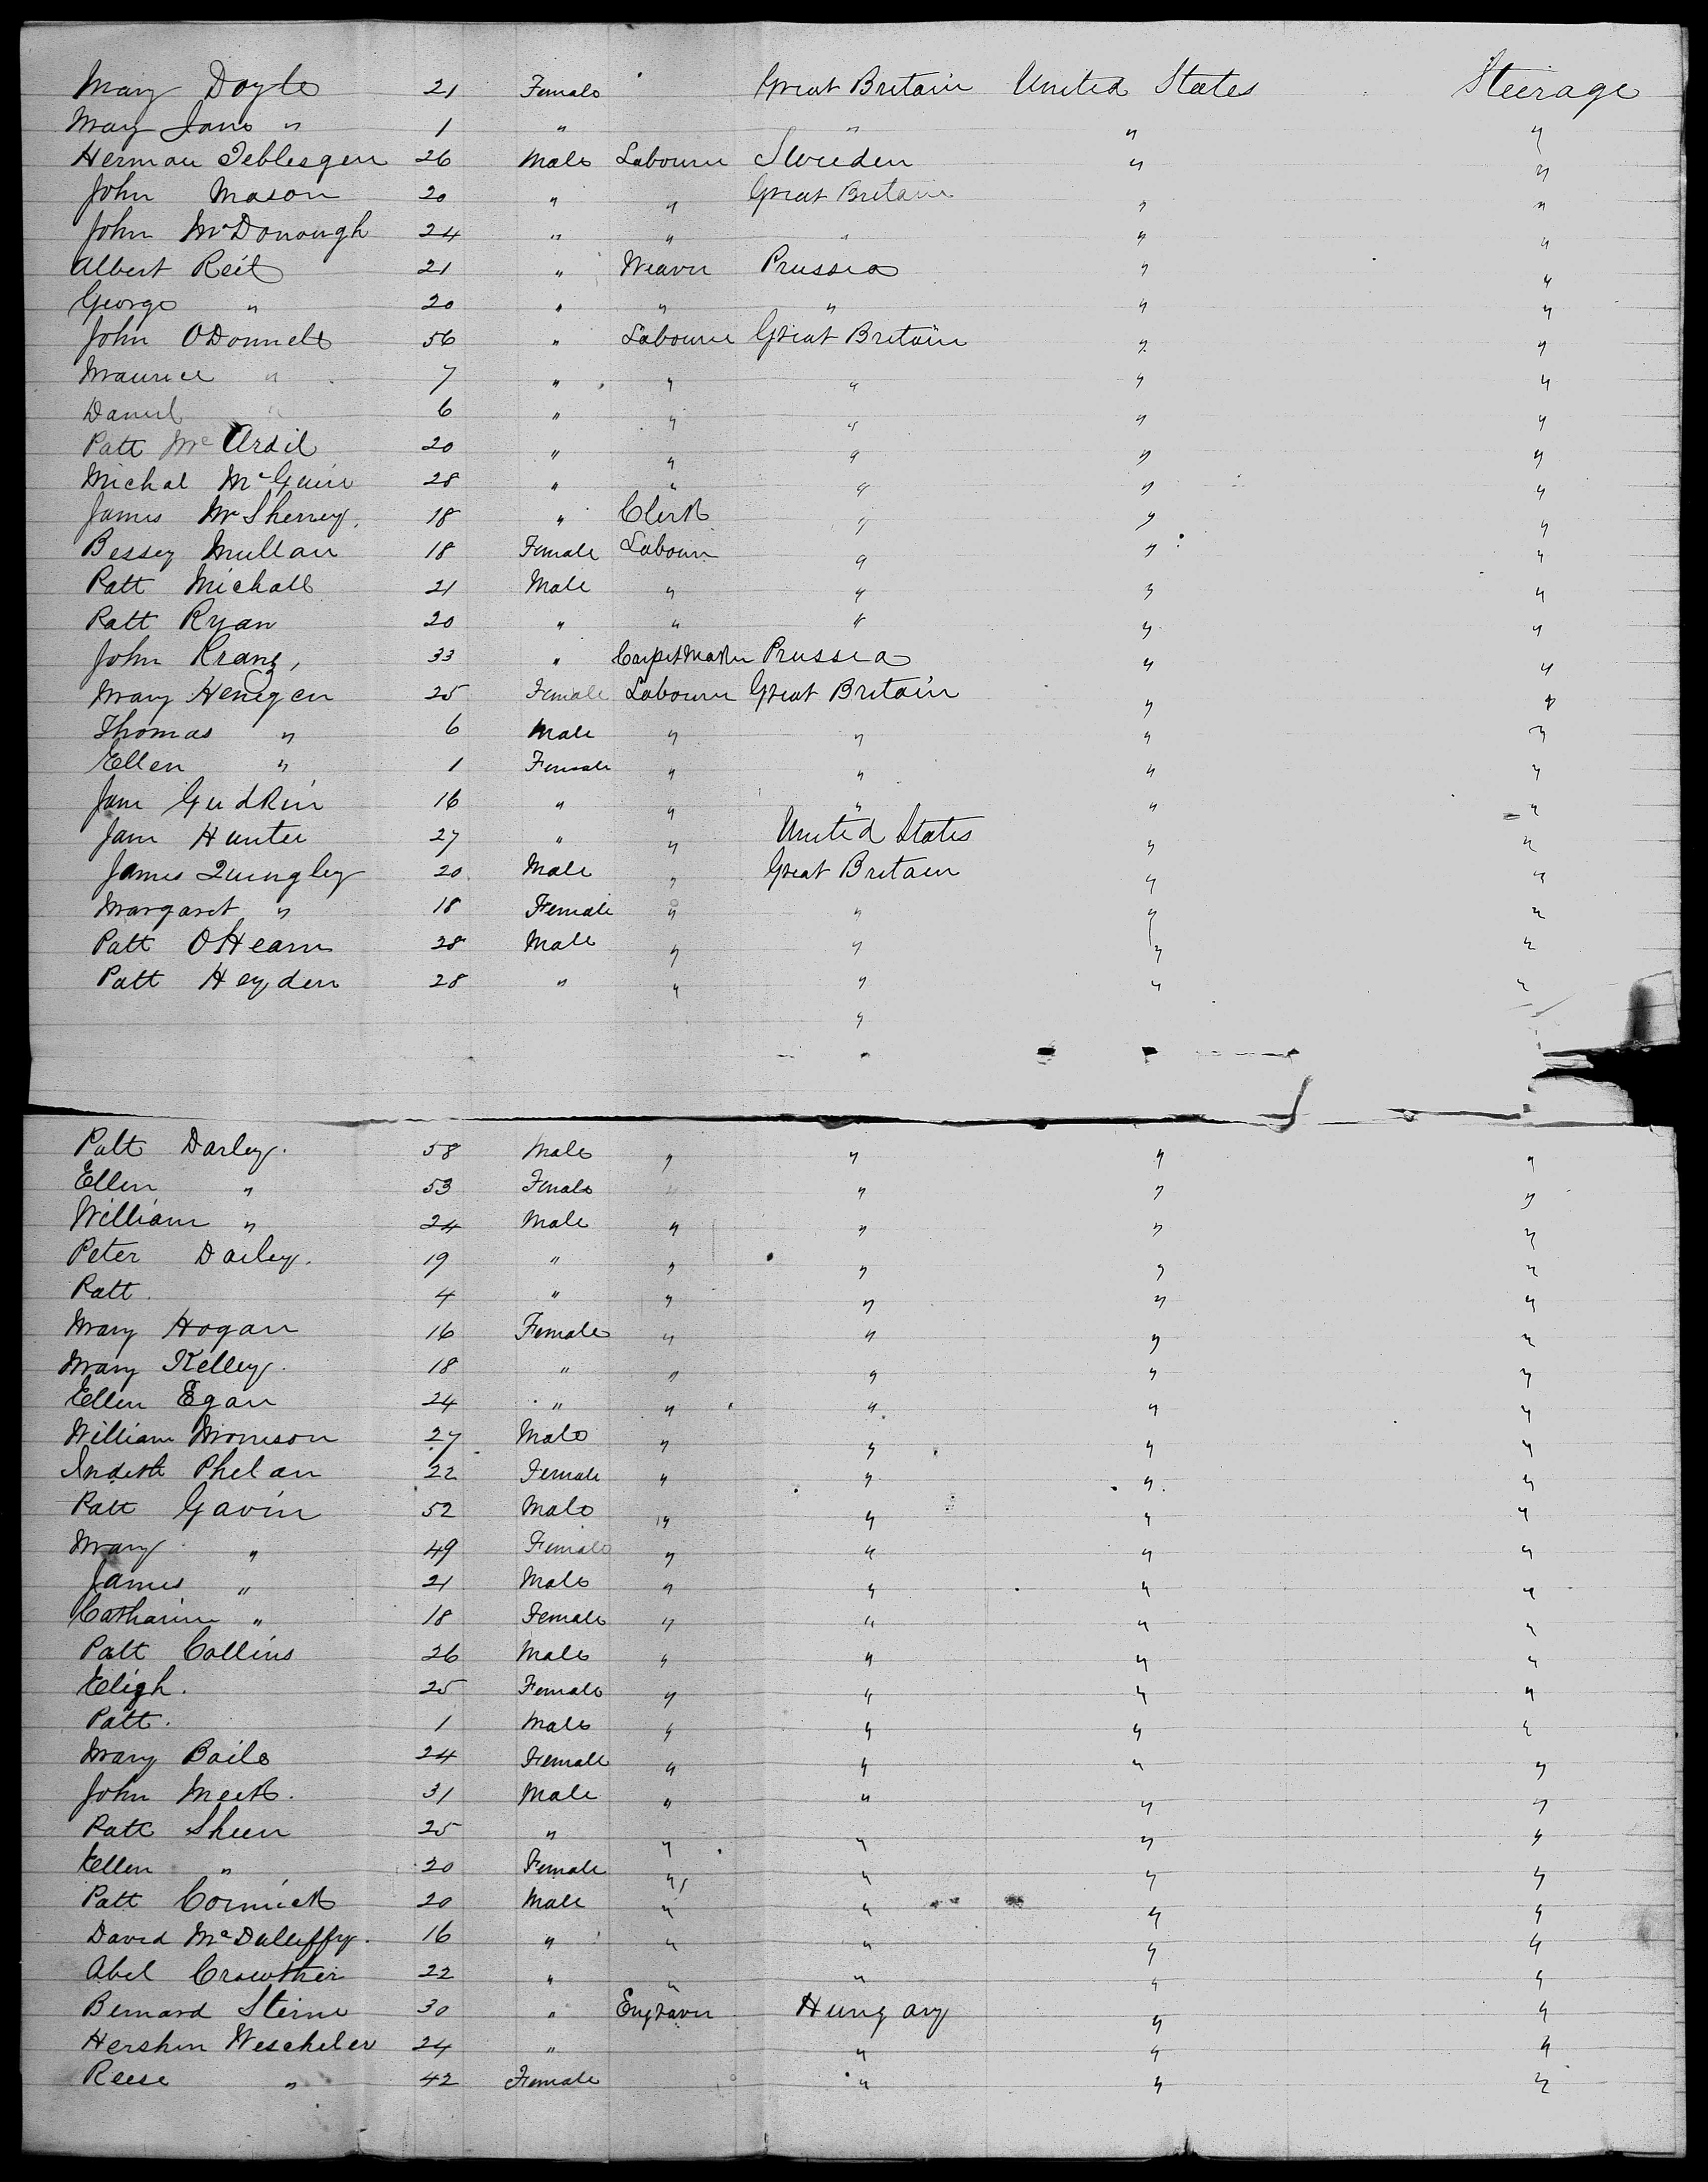 Mary Doyle 21 Female Great Britain United States Steerage
Mary Jane " 1 " " " "
Herman Teblesgen 26 Male Labourer Sweden " "
John Mason 20 " " Great Britain " "
John McDonough 24 " " " " "
Albert Reit 21 " Weaver Prussia " "
George " 20 " " " " "
John ODonnell 56 " Labourer Great Britain " "
Maurice " 7 " " " " "
Daniel " 6 " " " " "
Patt McArdil 20 " " " " "
Michal McGuire 28 " " " " "
James McSherrey 18 " Clerk " " "
Bessey Mullan 18 Female Labour " " "
Patt Michall 21 Male " " " "
Patt Ryan 20 " " " " "
John Kranz, 33 " Carpet Maker Prussia " "
Mary Henegen 25 Female Labourer Great Britain " "
Thomas " 6 Male " " " "
Ellen " 1 Female " " " "
Jane Gudkin 16 " " " " "
Jane Hunter 27 " " United States " "
James Quingley 20 Male " Great Britain " "
Margaret " 18 Female " " " "
Patt OHearn 28 Male " " " "
Patt Heyden 28 " " " " "
"
Patt Darley. 58 Male " " " "
Ellen " 53 Female " " " "
William " 24 Male " " " "
Peter Darley. 19 " " " " "
Patt. 4 " " " " "
Mary Hogan 16 Female " " " "
Mary Kelley. 18 " " " " "
Ellen Egan 24 " " " " "
William Morrison 27 Male " " " "
Judith Phelan 22 Female " " " "
Patt Gavin 52 Male " " " "
Mary " 49 Female " " " "
James " 21 Male " " " "
Catharine " 18 Female " " " "
Patt Collins 26 Male " " " "
Eligh. 25 Female " " " "
Patt. 1 Male " " " "
Mary Baile 24 Female " " " "
John Meek. 31 Male " " " "
Patt Sheen 25 " " " " "
Ellen " 20 Female " " " "
Patt Cormick 20 Male " " " "
David McDulleffy. 16 " " " " "
Abel Crowther 22 " " " " "
Bernard Sterne 30 " Engraver Hungary " "
Hershen Wescheler 24 " " " "
Reese " 42 Female " " "